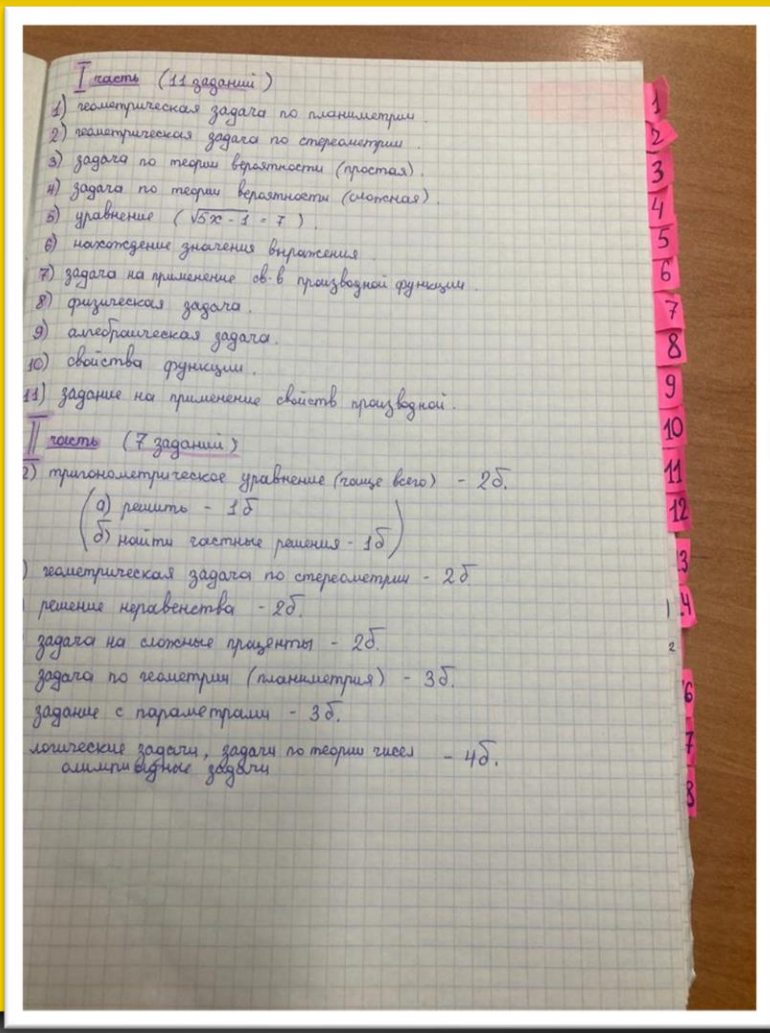 I часть (11 заданий)
1) геометрическая задача по планиметрии.
2) геометрическая задача по стереометрии.
3) задача по теории вероятности (простая).
4) задача по теории вероятности (сложная).
5) уравнение (√5x - 1 = 7).
6) нахождение значения выражения
7) задача на применение св-в производной функции.
8) физическая задача.
9) алгебраическая задача.
10) свойства функции.
11) задание на применение свойств производной.
II часть (7 заданий)
2) тригонометрическое уравнение (чаще всего) - 2б.
(а) решить - 1б
б) найти частные решения - 1б)
) геометрическая задача по стереометрии - 2б
решение неравенства - 2б.
задача на сложные проценты - 2б.
задача по геометрии (планиметрия) - 3б.
задание с параметрами - 3б.
логические задачи, задачи по теории чисел - 4б.
олимпиадные задачи
1
2
3
4
5
6
7
8
9
10
11
12
3
4
6
7
8